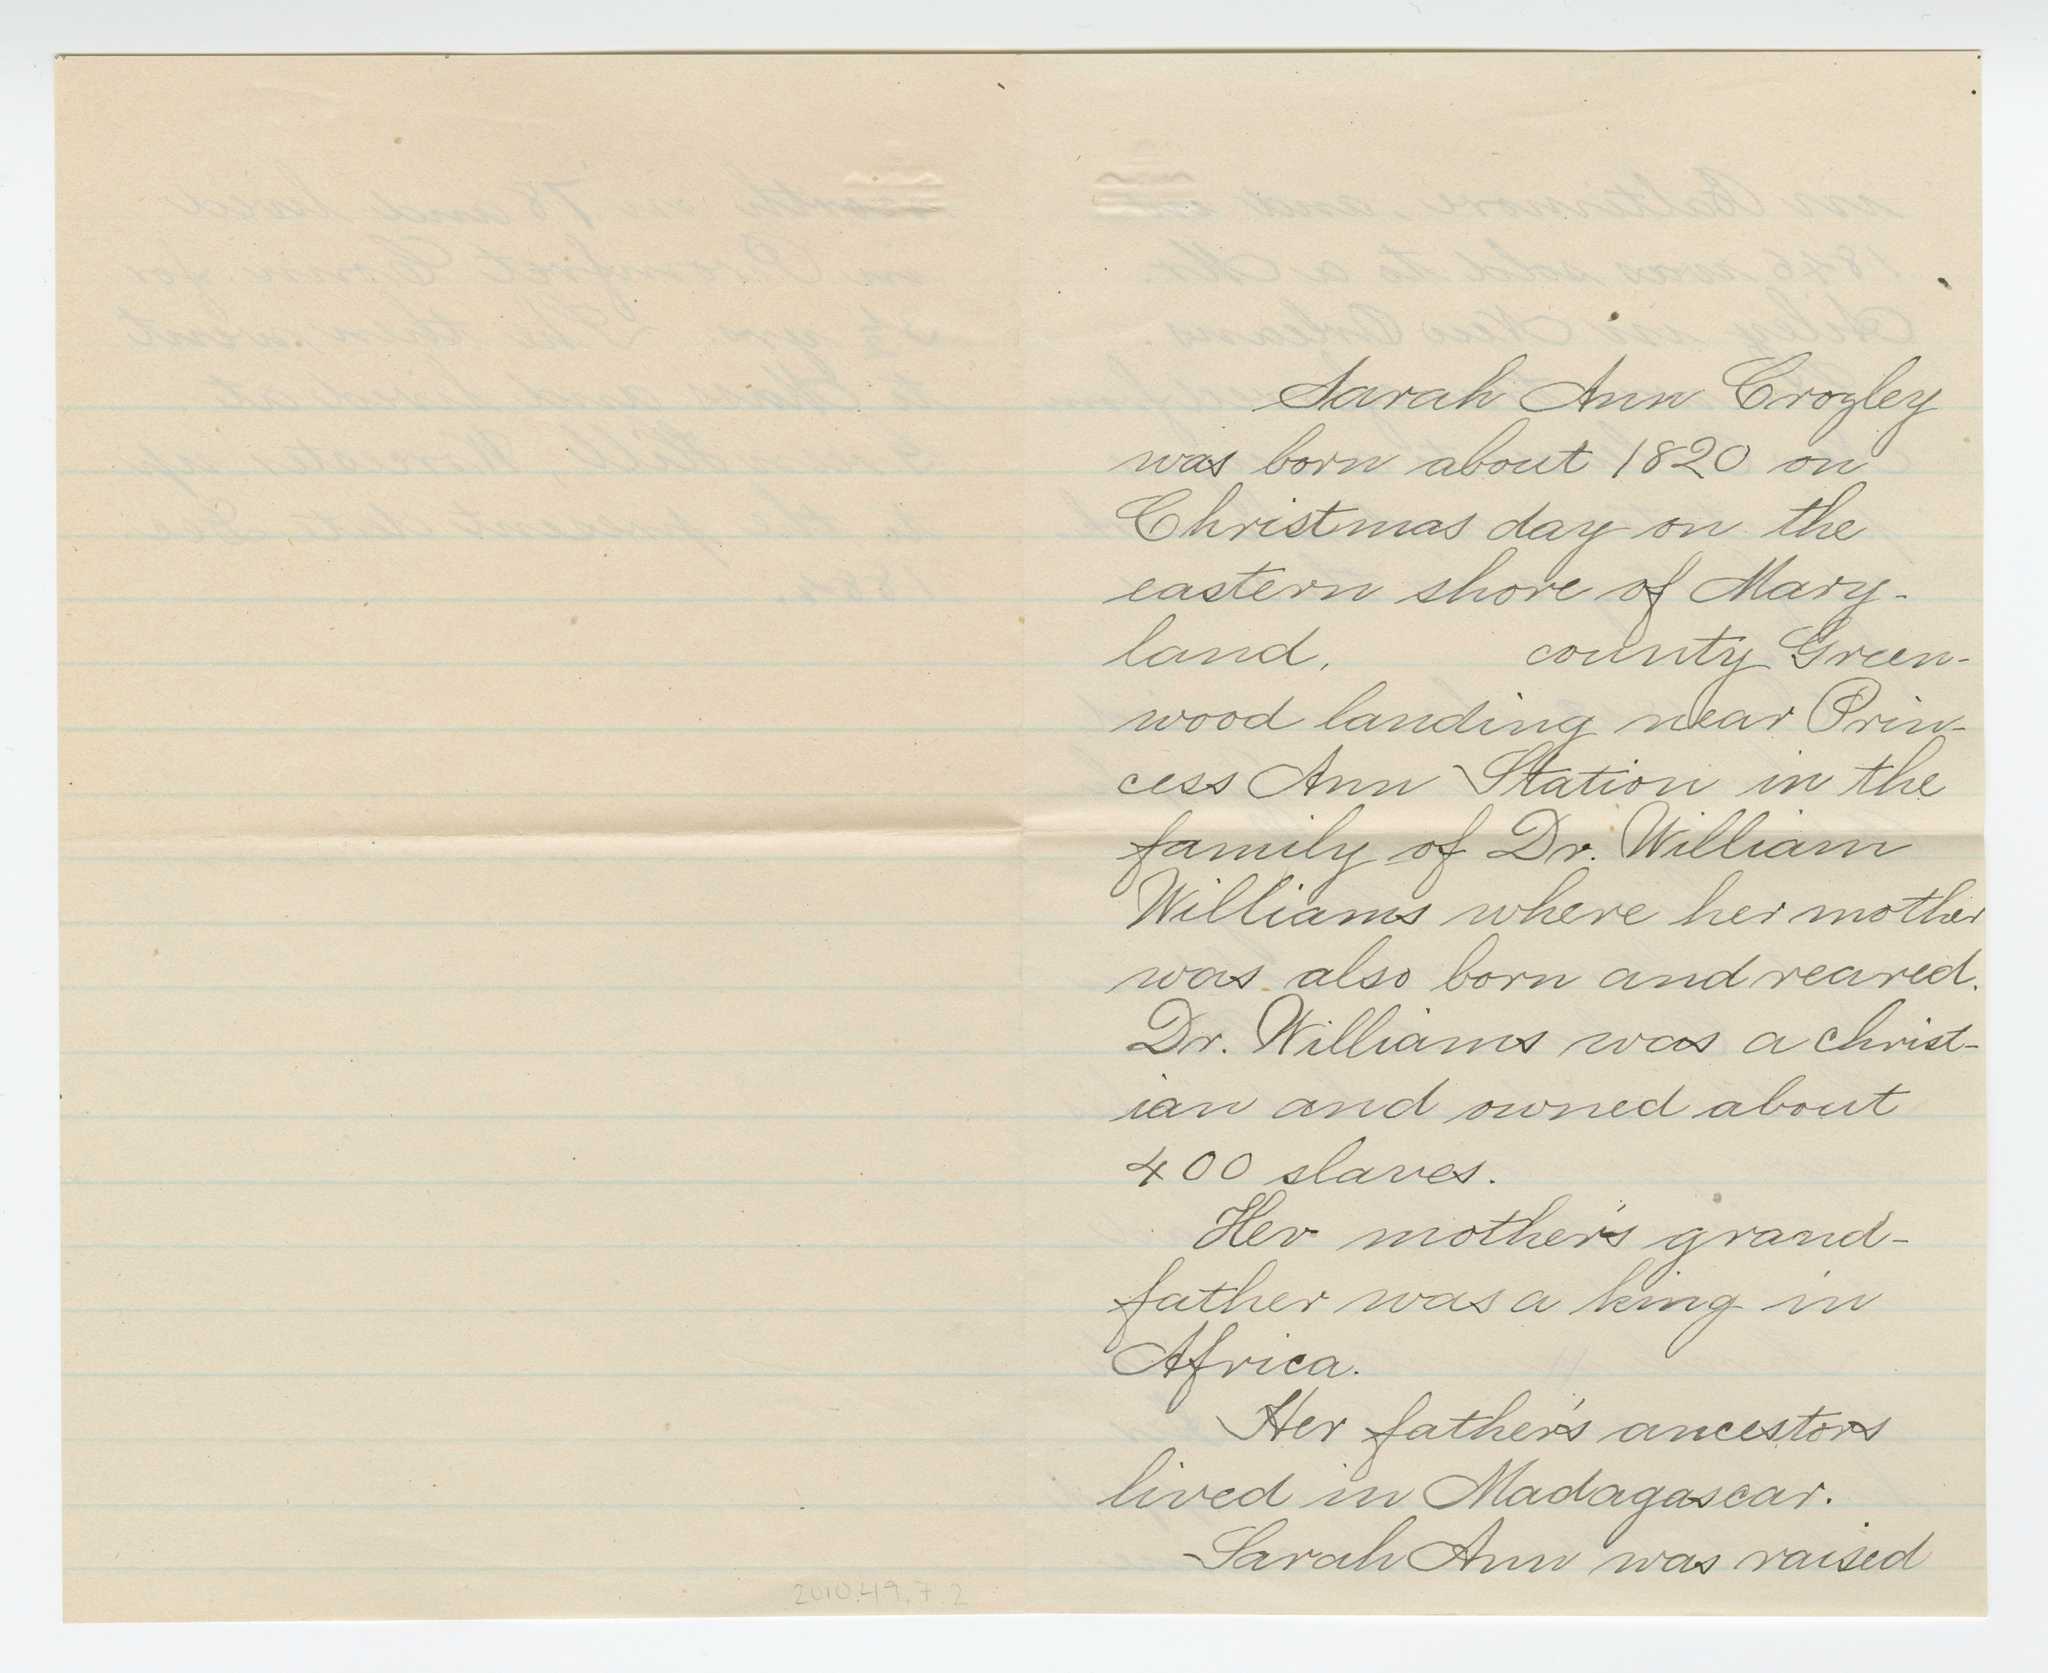 Sarah Ann Crozley
was born about 1820 on
Christmas day on the
eastern shore of Mary-
land, county Green-
wood landing near Prin-
cess Ann Station in the
family of Dr. William
Williams where her mother
was also born and reared.
Dr. Williams was a christ-
ian and owned about
400 slaves.
Her mother's grand-
father was a king in
Africa.
Her father's ancestors
lived in Madagascar.
Sarah Ann was raised
2010.49.7.2